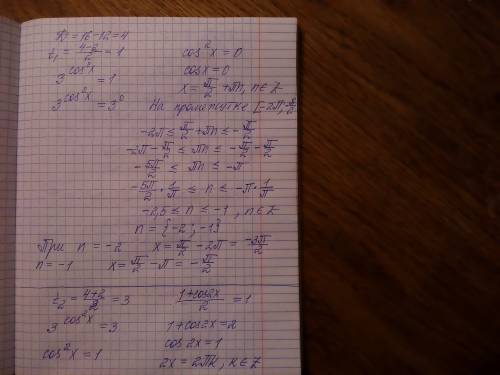 D = 16 - 12 = 4
t₁ = (4-2)/2 = 1
3^(cos²x) = 1
3^(cos²x) = 3⁰
cos²x = 0
cosx = 0
x = π/2 + πn, n ∈ Z
На промежутке [-2π; -π/2]
-2π ≤ π/2 + πn ≤ -π/2
-2π - π/2 ≤ πn ≤ -π/2 - π/2
-5π/2 ≤ πn ≤ -π
-5π/2 · 1/π ≤ n ≤ -π · 1/π
-2,5 ≤ n ≤ -1, n ∈ Z
n = {-2; -1}
При n = -2 x = π/2 - 2π = -3π/2
n = -1 x = π/2 - π = -π/2
t₂ = (4+2)/2 = 3
3^(cos²x) = 3
cos²x = 1
(1+cos2x)/2 = 1
1 + cos2x = 2
cos2x = 1
2x = 2πk, k ∈ Z